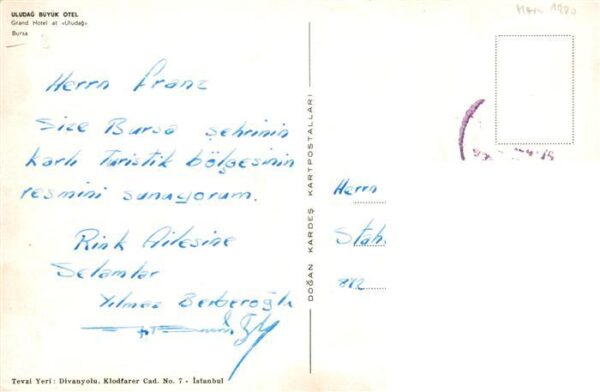 ULUDAĞ BÜYÜK OTEL
Grand Hotel at «Uludağ»
Bursa
1980
Herrn Franz
Size Bursa şehrinin
karlı turistik bölgesinin
resmini sunuyorum.
Rink Ailesine
Selamlar
Yılmaz Berberoğlu
DOĞAN KARDEŞ KARTPOSTALLARI
Herrn
Stah
Tevzi Yeri: Divanyolu, Klodfarer Cad. No. 7 - İstanbul